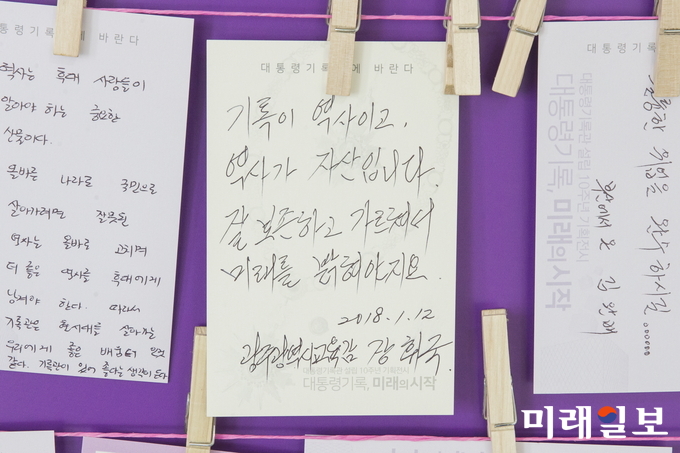 대통령기록 에 바란다
역사는 후대 사람들이
알아야 하는 중요한
산물이다.
올바른 나라로 국민으로
살아가려면 잘못된
역사는 올바로 고치며
더 좋은 역사를 후대에게
남겨야 한다. 따라서
기록관은 현시대를 살아가는
우리에게 좋은 배움터 인것
같다. 기록관이 있어 좋다는 생각이 든다
대통령기록 에 바란다
기록이 역사이고,
역사가 자산입니다.
잘 보존하고 가르쳐서
미래를 밝혀야지요.
2018.1.12
광주광역시교육감 장휘국.
대통령기록관 설립 10주년 기획전시
대통령기록, 미래의 시작
대통령기록
대통령기록관 설립 10주년 기획전시
대통령기록, 미래의 시작
위업을 완수 하시길
부산에서 온 김
미래일보